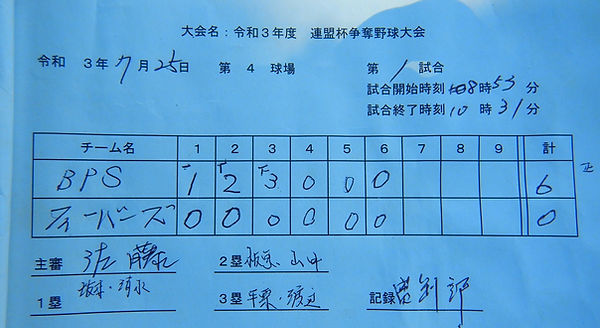 大会名：令和3年度 連盟杯争奪野球大会
令和 3年 7月 25日 第 4 球場 第 1 試合
試合開始時刻 8時 53 分
試合終了時刻 10 時 31 分
チーム名 1 2 3 4 5 6 7 8 9 計
BPS 1 2 3 0 0 0 6
フィーバーズ 0 0 0 0 0 0 0
主審 佐藤 2塁 板東・山中
1塁 坂本・清水 3塁 平栗・渡辺 記録